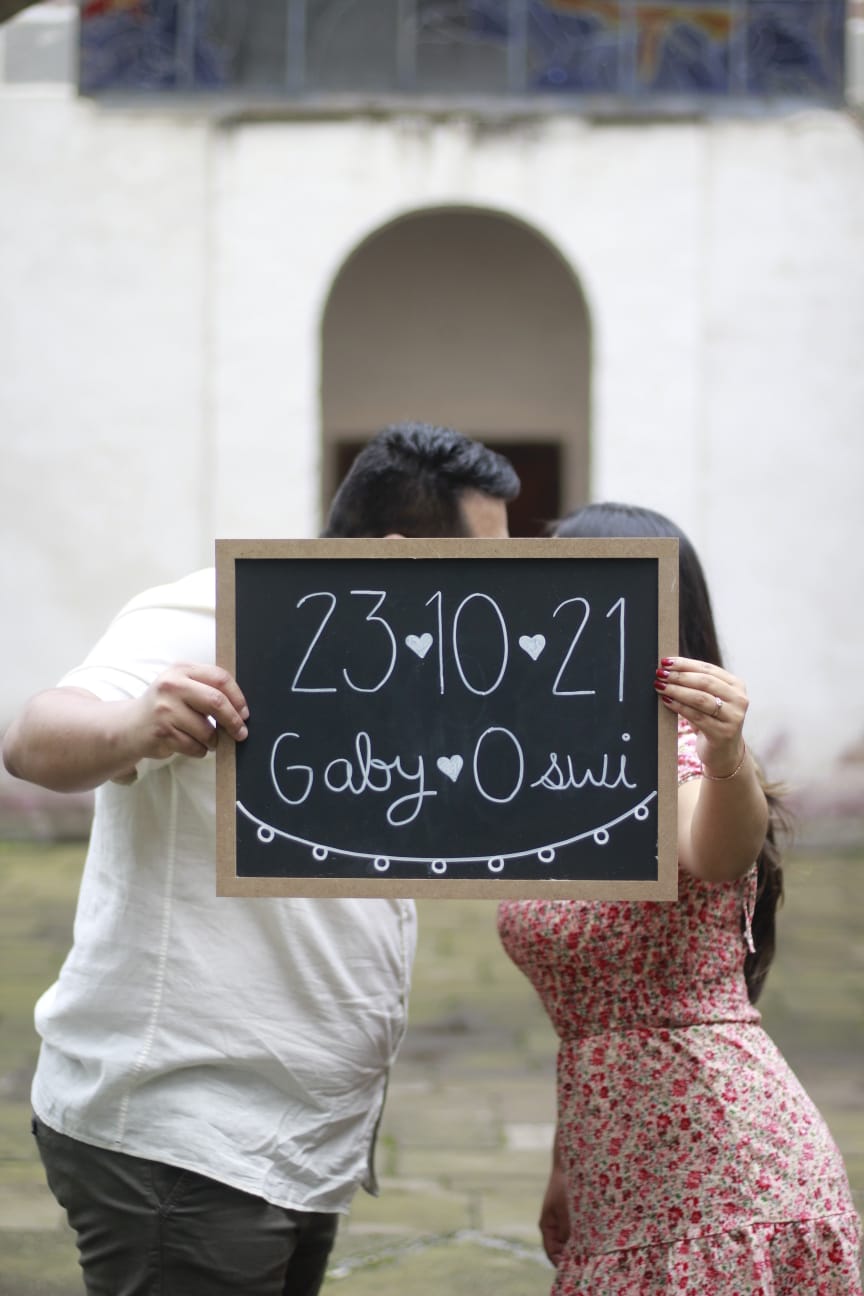 23♥10♥21
Gaby♥Oswi